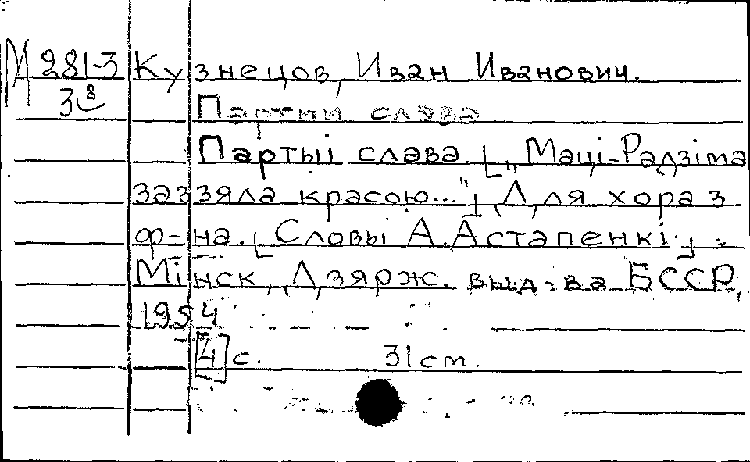 М 281-3 Кузнецов, Иван Иванович.
3 8
Партыи слава
Партыі слава [„Маці-Радзіма
зазззяла красою..."], Для хора з
ф-на. [Словы А. Астапенкі].
Мінск, Дзярж. выд-ва БССР,
1954
[4] с. 31 см.